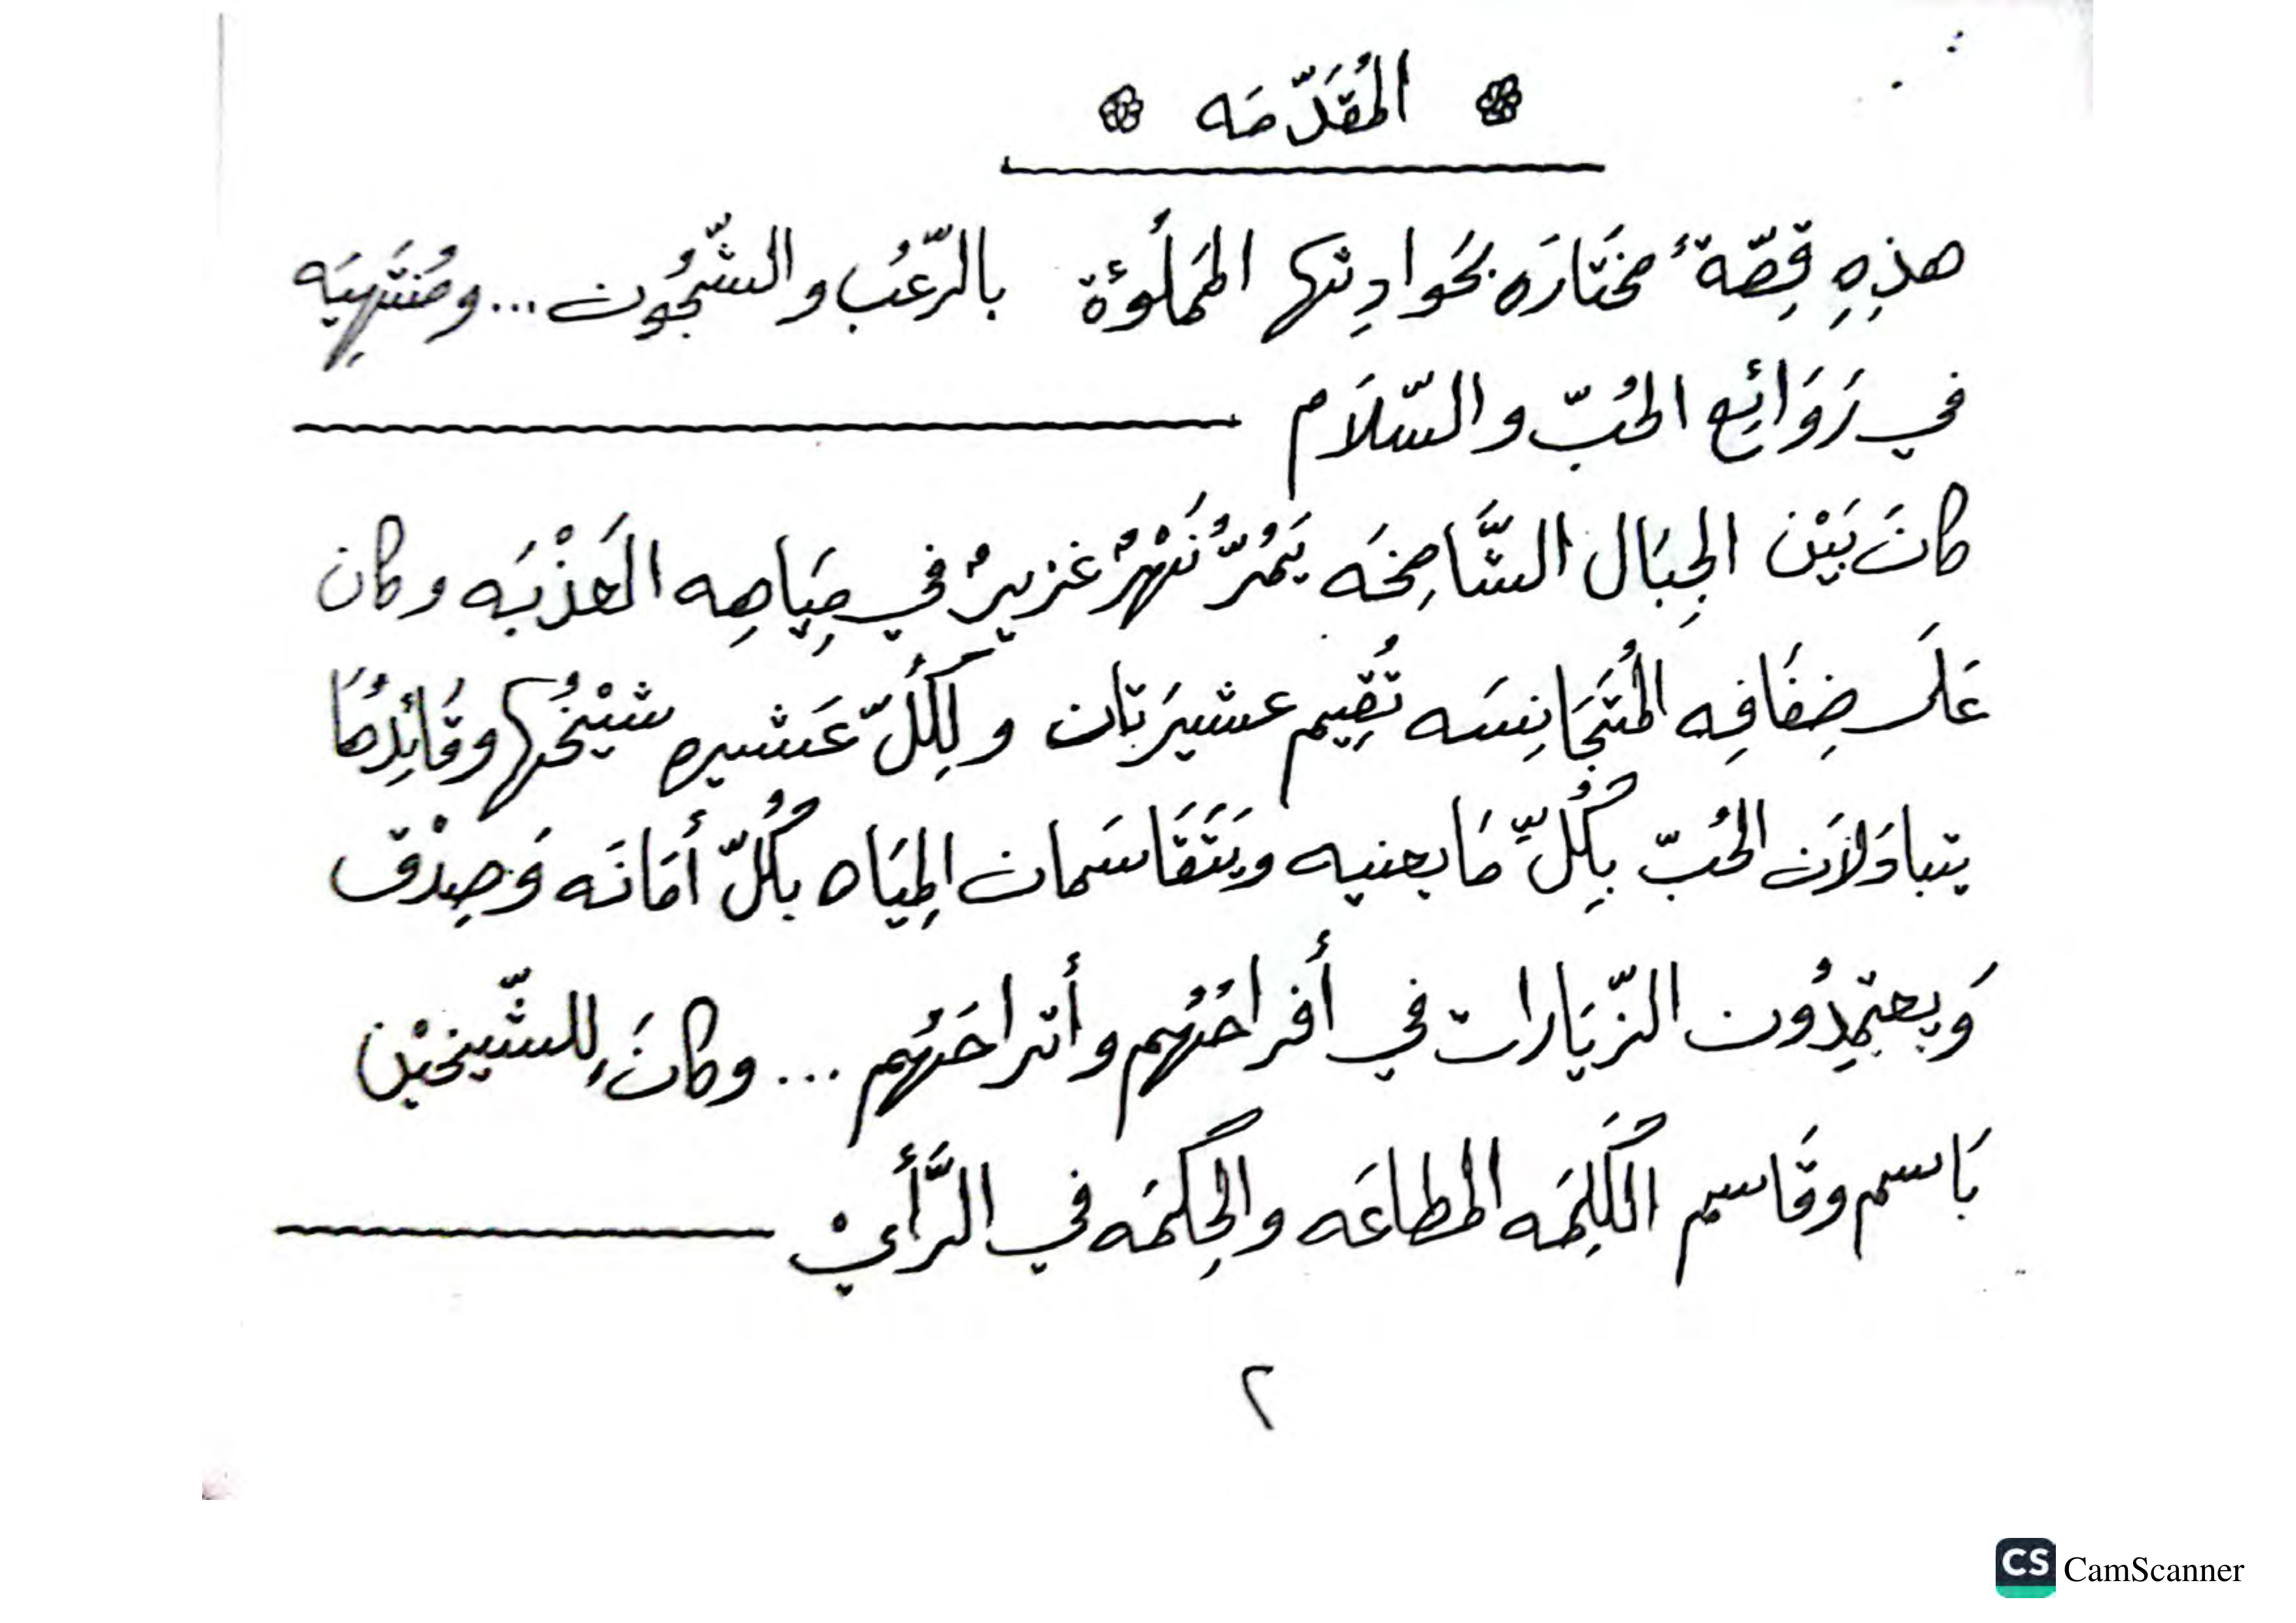 المُقَدّمَه
هذِهِ قِصّةٌ مختَارَه بحَوادِثها المَملُوُةة بالرّعُب والشّجُون ... ومُنتَهِيَه
في رَوَائِع الحُبّ والسّلاَم
كانَ بَيْن الجِبَال الشَّامِخَه يَمُرّ نَهْرٌ غزيرٌ في مِيَاهِه العَذْبَه وكان
عَلَى ضِفَافِه المُتَجَانِسَه تُقِيم عشيرَتان ولِكُلّ عَشيره شيْخُها وقَائِدُهَا
يتبادَلاَن الحُبّ بِكُلِّ مَا يعنيه ويَتَقَاسَمان المِيَاه بكُلّ أمَانَه وَصِدْق
وَيعتمِدُون الزّيَارات في أفراحَهُم وأتراحَهُم ... وكانَ لِلشّيخيْن
بَاسم وقَاسم الكَلِمَه المطاعَه والحِكمَه في الرَّأيْ
٢
CS CamScanner